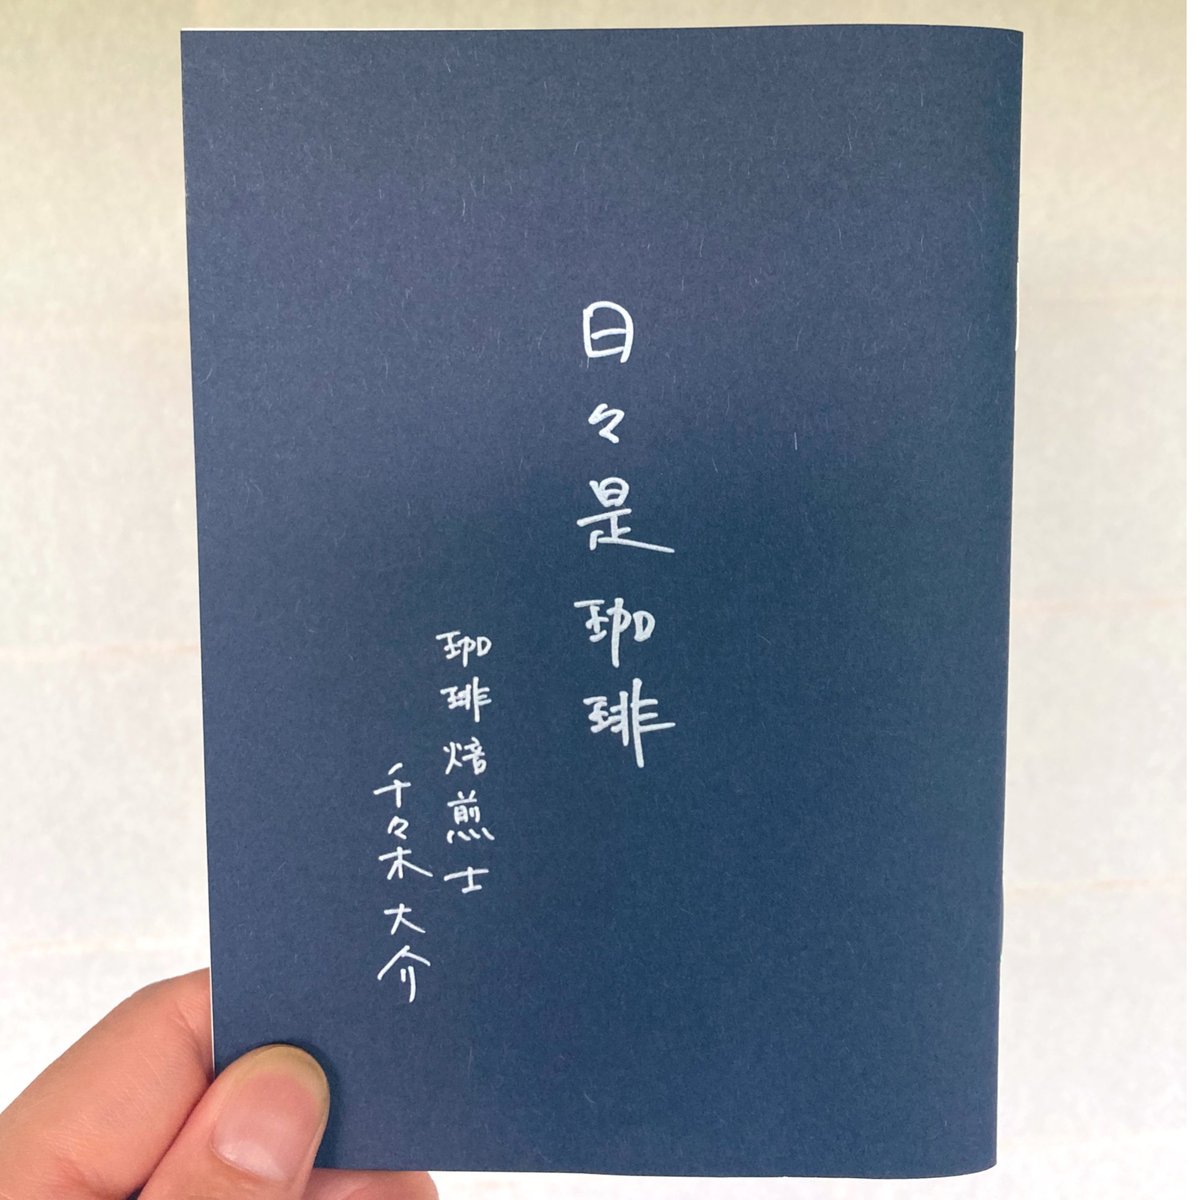 日々是珈琲
珈琲焙煎士
千々木大介